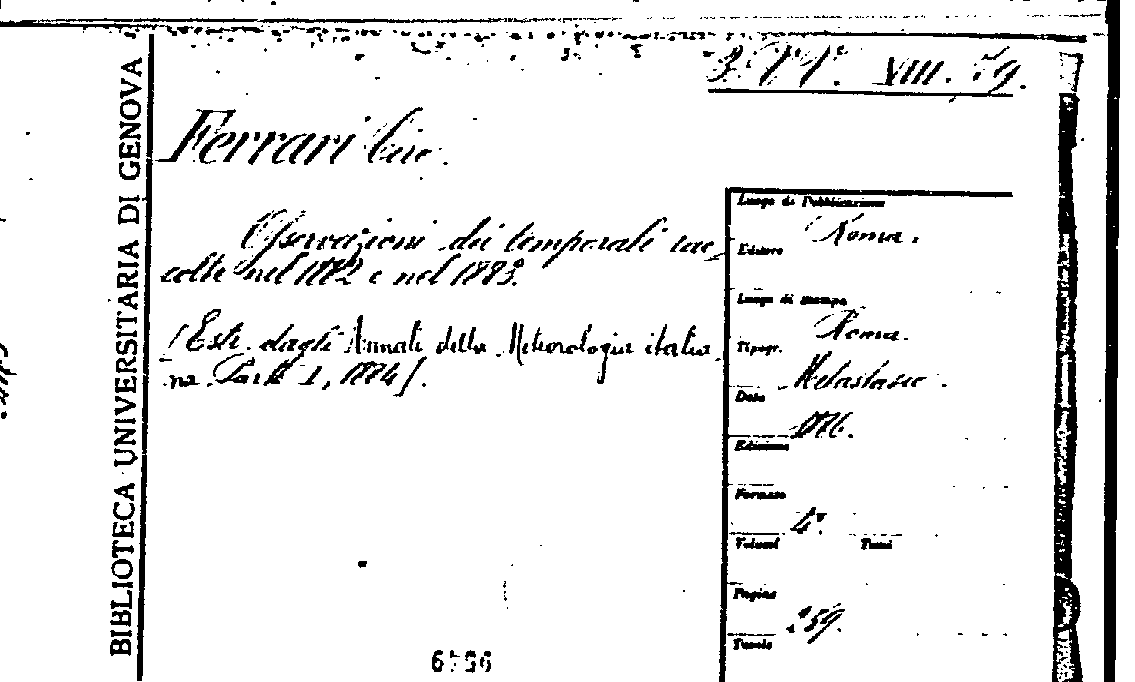 BIBLIOTECA UNIVERSITARIA DI GENOVA
XIII. 79.
Ferrari Ciro.
Osservazioni dei temporali rac
colte nel 1882 e nel 1883.
(Estr. dagli Annali della Meteorologia italia
na. Parte I, 1884).
Luogo di Pubblicazione
Roma.
Editore
Luogo di stampa
Roma.
Tipogr.
Metastasio.
Data
Edizione
Formato
4°.
Volumi Tomi
Pagine
259.
Tavole